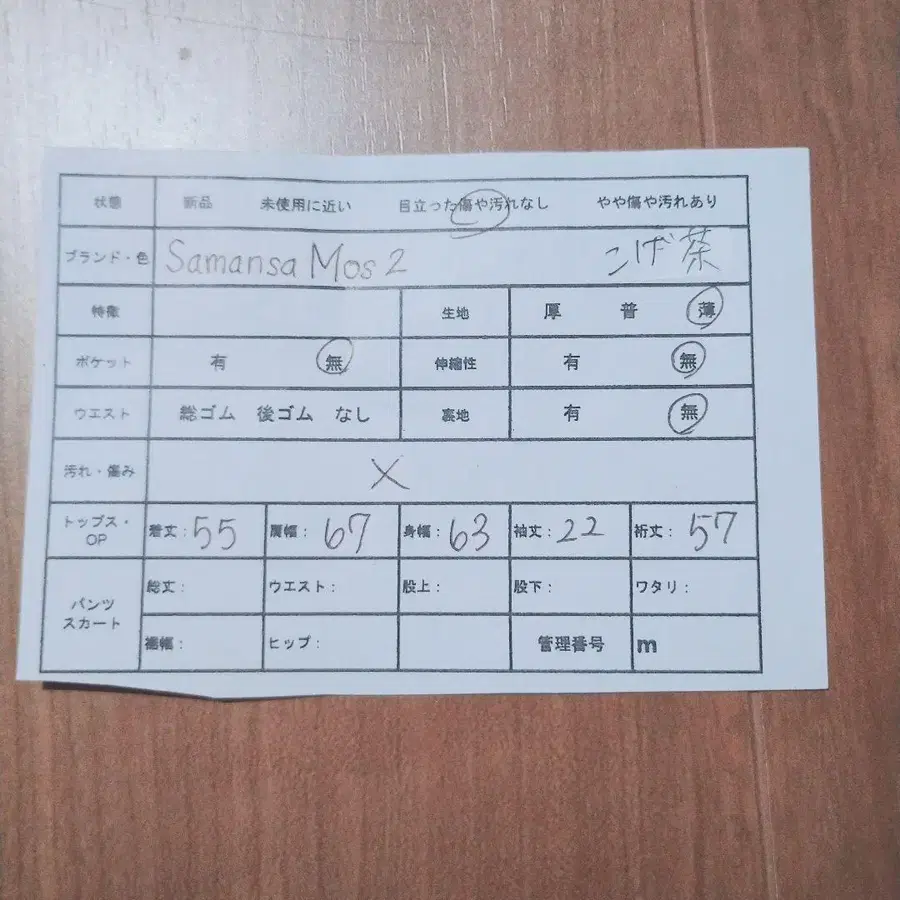 状態 新品 未使用に近い 目立った傷や汚れなし やや傷や汚れあり
ブランド・色 Samansa Mos2 こげ茶
特徴 生地 厚 普 薄
ポケット 有 無 伸縮性 有 無
ウエスト 総ゴム 後ゴム なし 裏地 有 無
汚れ・傷み ×
トップス・OP 着丈:55 肩幅:67 身幅:63 袖丈:22 裄丈:57
パンツ スカート 総丈: ウエスト: 股上: 股下: ワタリ:
裾幅: ヒップ: 管理番号 m